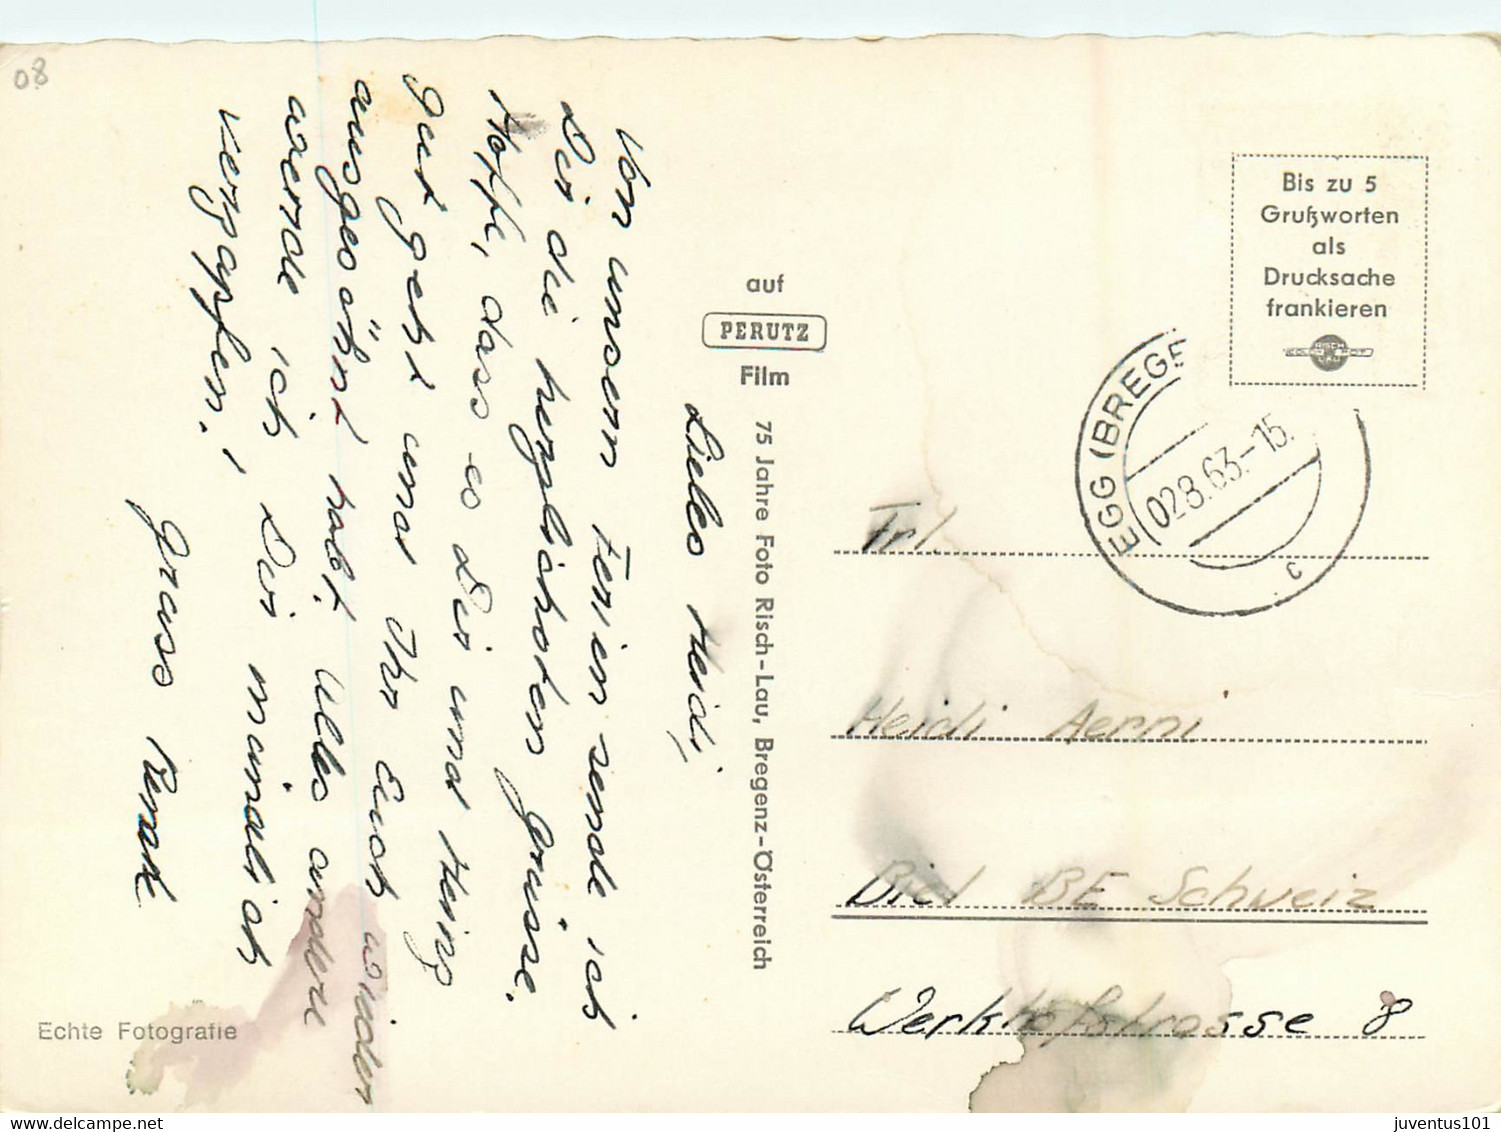 08
Liebes Heidi,
Von unsern Ferien sende ich
Dir die herzlichsten Grüsse.
Hoffe, dass es Dir und Heinz
gut geht und Ihr Euch wider
ausgesöhnt habt. Alles andere
werde ich Dir mündlich
verzapfen.
Gruss
auf
PERUTZ
Film
75 Jahre Foto Risch-Lau, Bregenz-Österreich
Echte Fotografie
Bis zu 5
Grußworten
als
Drucksache
frankieren
RISCH
LAU
EGG (BREGE
02.8.63.-15.
c
Frl.
Heidi Aerni
Biel BE Schweiz
Werkhofstrasse 8
juventus101